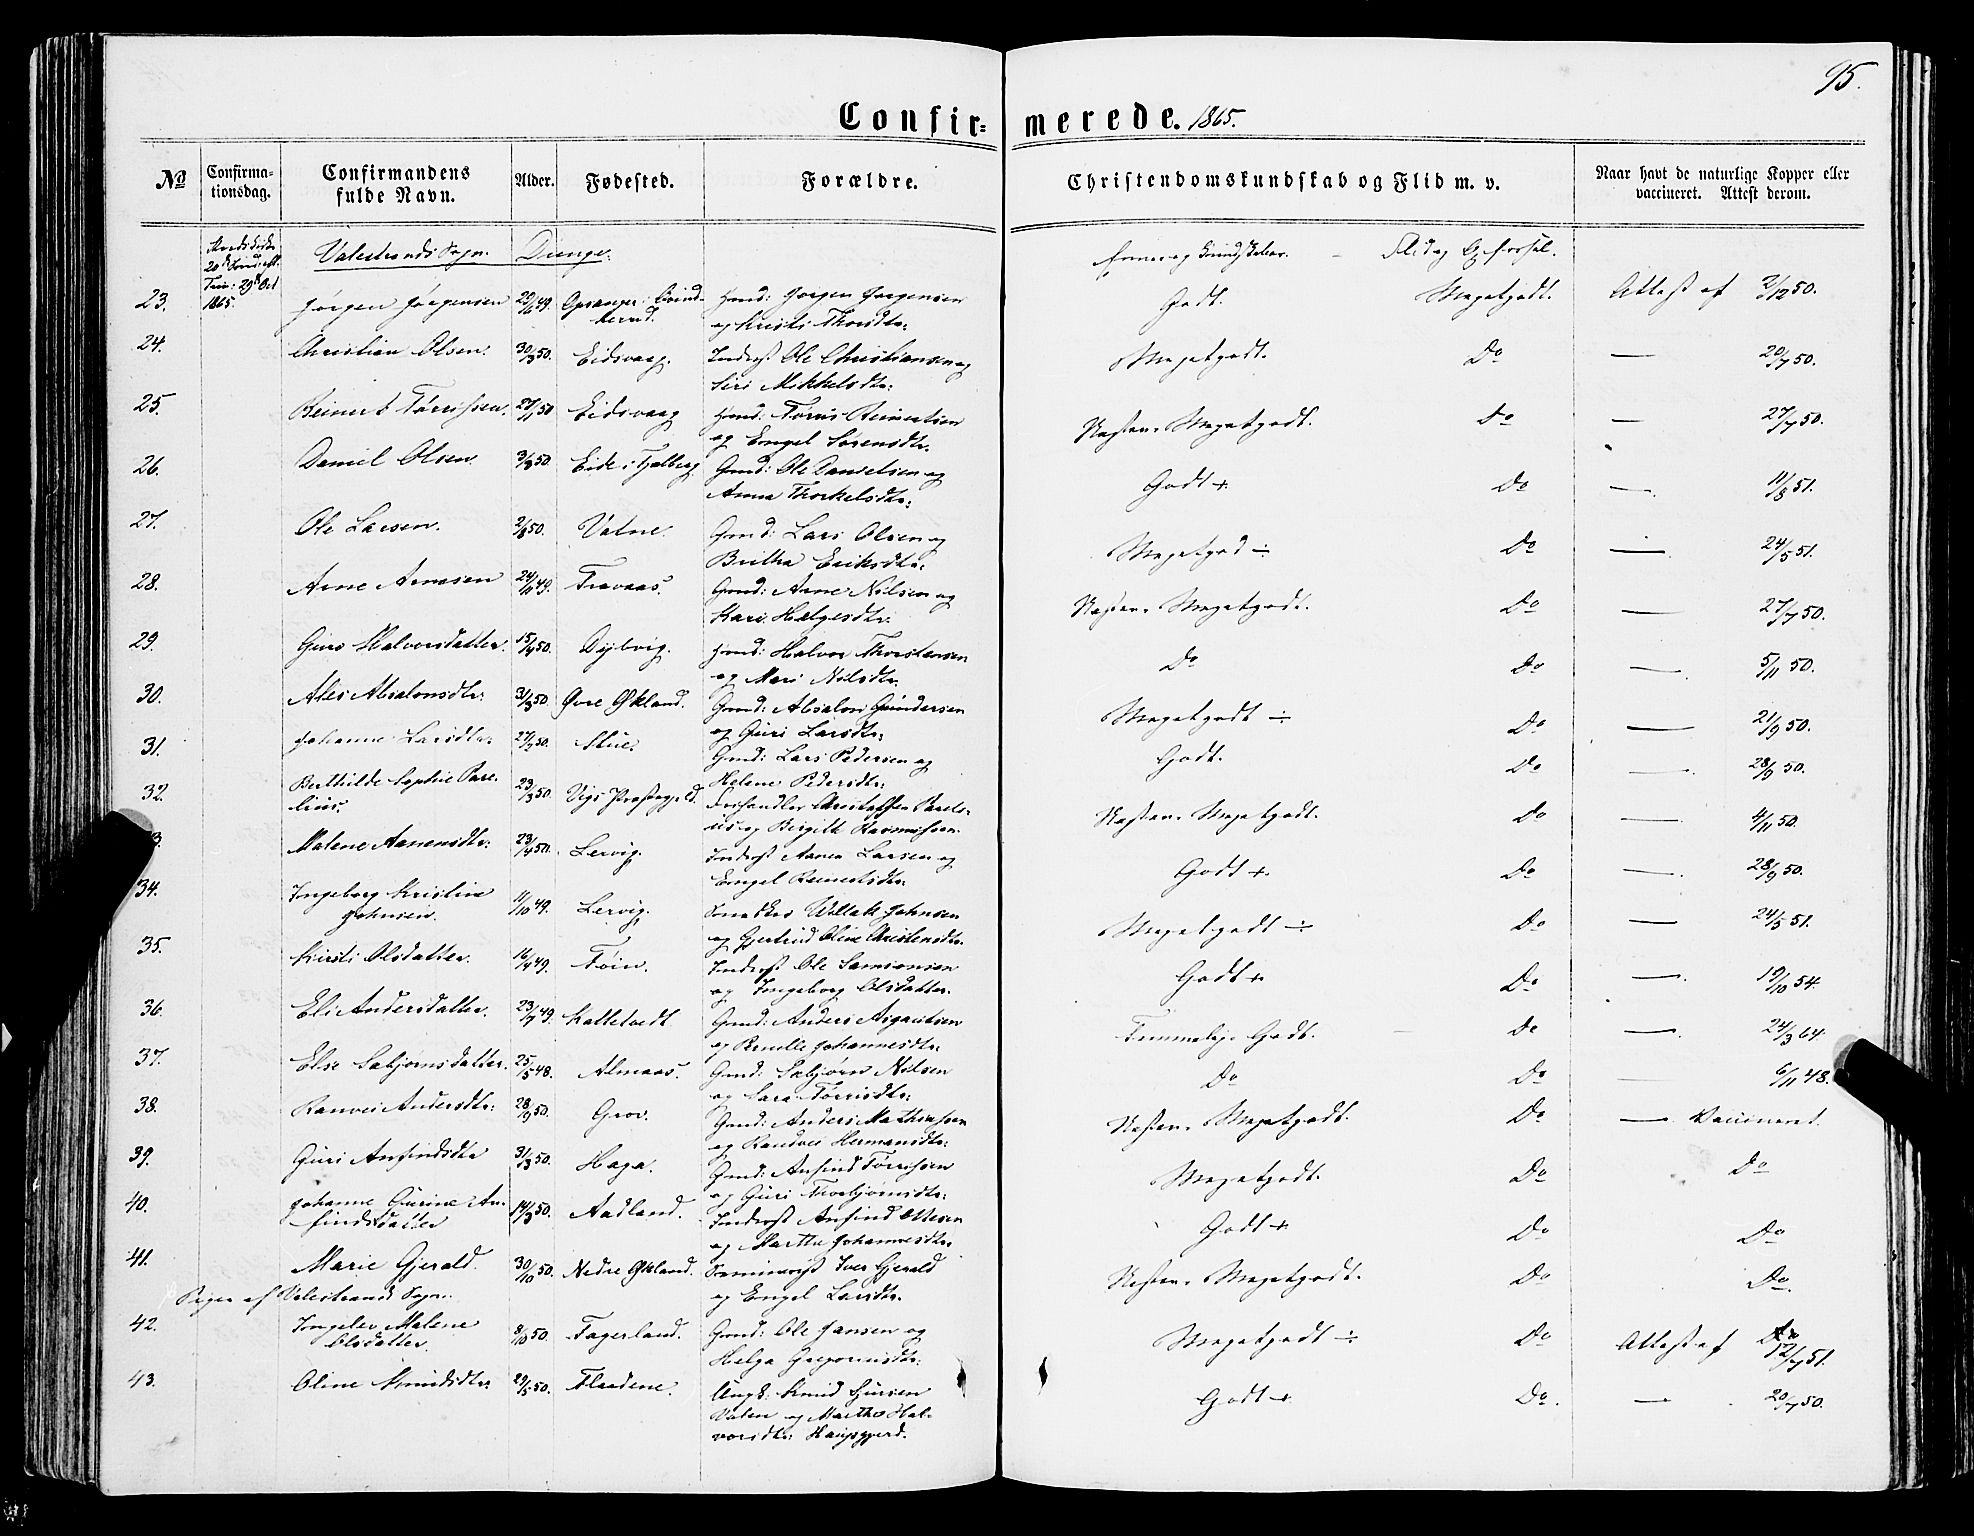 95.
Confirmerede. 1865.
No
Confirmationsdag.
Confirmandens fulde Navn.
Alder.
Fødested.
Forældre.
Christendomskundskab og Flid m. v.
Naar havt de naturlige Kopper eller vaccineret. Attest derom.
20de Trin: 29de Oct 1865.
Valestrands Sogn. Drenge.
Flid og Opførsel.
23. Jørgen Jørgensen 49. Jørgen Jørgensen
og Kristi Godt. Megetgodt. Attest af 2/12 50.
24. Christian Olsen. 30/3 50. Eidsvaag. Inderst Ole Christiansen og
Siri Mikkelsdtr: Megetgodt. Do — 20/7 50.
25. Reinert Tørrissen. 27/11 50 Eidsvaag Hmd: Tørris Reinertsen
og Engel Sørensdtr. Næsten Megetgodt. Do — 27/7 50.
26. Daniel Olsen. 3/3 50. Eide i Fjelberg Gmd: Ole Danielsen og
Anna Thorkelsdtr: Godt + Do — 11/8 51.
27. Ole Larsen. 50. Vatne. Gmd: Lars Olsen og
Britha Eriksdtr: Megetgod ÷ Do — 24/5 51.
28. Arne Arnesen 24/11 49. Trovaas. Gmd: Arne Nilsen og
Kari Helgesdtr: Næsten Megetgodt. Do — 27/7 50.
29. Guro Halvorsdatter. 15/4 50. Dybvig. Hmd: Halvor Thorstensen
og Mari Nilsdtr. Do Do — 5/11 50.
30. Ales Absalonsdtr: 31/3 50. Øvre Økland. Gmd: Absalon Gundersen
og Guri Larsdtr: Megetgodt ÷ Do — 21/9 50.
31. Johanne Larsdtr. 27/2 50. Stue. Gmd: Lars Pedersen og
Helene Pedersdtr: Godt. Do — 28/9 50.
32. Berthilde Sophie Pare-
lius. 23/3 50. Vigs Præstegjeld.
og Birgitte Rasmussen. Næsten Megetgodt. Do — 4/11 50.
Malene Aanensdtr: 23/4 50. Lervig. Inderst Aanen Larsen og
Engel Reinertsdtr. Godt + Do — 28/9 50.
34. Ingeborg Kristine
Johnsen. 11/10 49. Lervig. Willak Johnsen
og Gjertrud Oline Christensdtr. Megetgodt ÷ Do — 24/5 51.
35. Kirsti Olsdatter. 16/4 49. Tøin. Inderst Ole Samsonsen
og Ingeborg Olsdatter. Godt + Do — 19/10 54.
36. Eli Andersdatter. 23/7 49. Kalletvedt Gmd: Anders Asgautsen
og Johannesdtr: Temmelig Godt. Do — 24/3 64.
37. Else Sebjørnsdatter. 25/5 48. Almaas. Gmd: Sebjørn Nilsen
og Sara Tørrisdtr: Do Do — 6/11 48.
38. Ranvei Andersdtr: 28/9 50. Grov. Gmd: Anders Mathiassen
og Randvei Hermansdtr: Næsten Megetgodt. Do — Vaccineret.
39. Guri Anfindsdtr 31/3 50. Haga. Gmd: Anfind Tørrissen
og Guri Torbjørnsdtr: Megetgodt. Do Do
40. Johanne Gurine An-
findsdatter 14/3 50. Aadland. Inderst Anfind Ottesen
og Martha Johannesdtr. Godt + Do Do
41. Marie Gjerald. 30/10 50. Nedre Økland. Iver Gjerald
og Engel Larsdtr. Næsten Megetgodt. Do Do.
Piger af Valestrands Sogn:
42. Ingelev Malene
Olsdatter. 8/10 50. Fagerland. Gmd: Ole Jansen og
Helga Gregoriusdtr: Megetgodt ÷ Do Attest af 12/7 51.
43. Oline Knudsdtr 29/5 50. Fladene. Ungk: Knud
Valen og Martha Hal-
vorsdtr: Godt + Do. — 20/7 50.